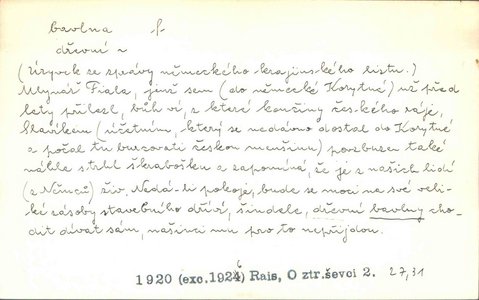 bavlna f.
dřevní ~
(Úryvek ze zprávy německého krajinského listu.)
Mlynář Fiala, jenž sem (do německé Korytné) už před
lety přilezl, bůh ví, z které končiny českého ráje,
Slavíkem (účetním, který se nedávno dostal do Korytné
a počal tu burcovati českou menšinu) povzbuzen také
náhle strhl škrabošku a zapomíná, že je z našich lidí
(z Němců) živ. Nedá-li pokoje, bude se moci na své veli-
ké zásoby stavebního dříví, šindele, dřevní bavlny cho-
dit dívat sám, našinci mu pro to nepřijdou.
1920 (exc. 1926) Rais, O ztr. ševci 2. 27,31